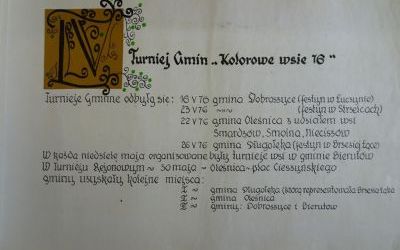 IV
Turniej Gmin „Kolorowe wsie 76"
Turnieje Gminne odbyły się: 16 V 76 gmina Dobroszyce (festyn w Łucynie)
23 V 76 (festyn w Strzelcach)
22 V 76 gmina Oleśnica z udziałem wsi
Smardzów, Smolna, Nieciszów
26 V 76 gmina Długołęka (festyn w Brzeziej Łące)
W każdą niedzielę maja organizowane były turnieje wsi w gminie Bierutów
W Turnieju Rejonowym ~ 30 maja ~ Oleśnica - plac Cieszyńskiego
gminy uzyskały kolejne miejsca:
I ~ gmina Długołęka (którą reprezentowała Brzezia Łąka
II ~ gmina Oleśnica
III ~ gminy: Dobroszyce i Bierutów